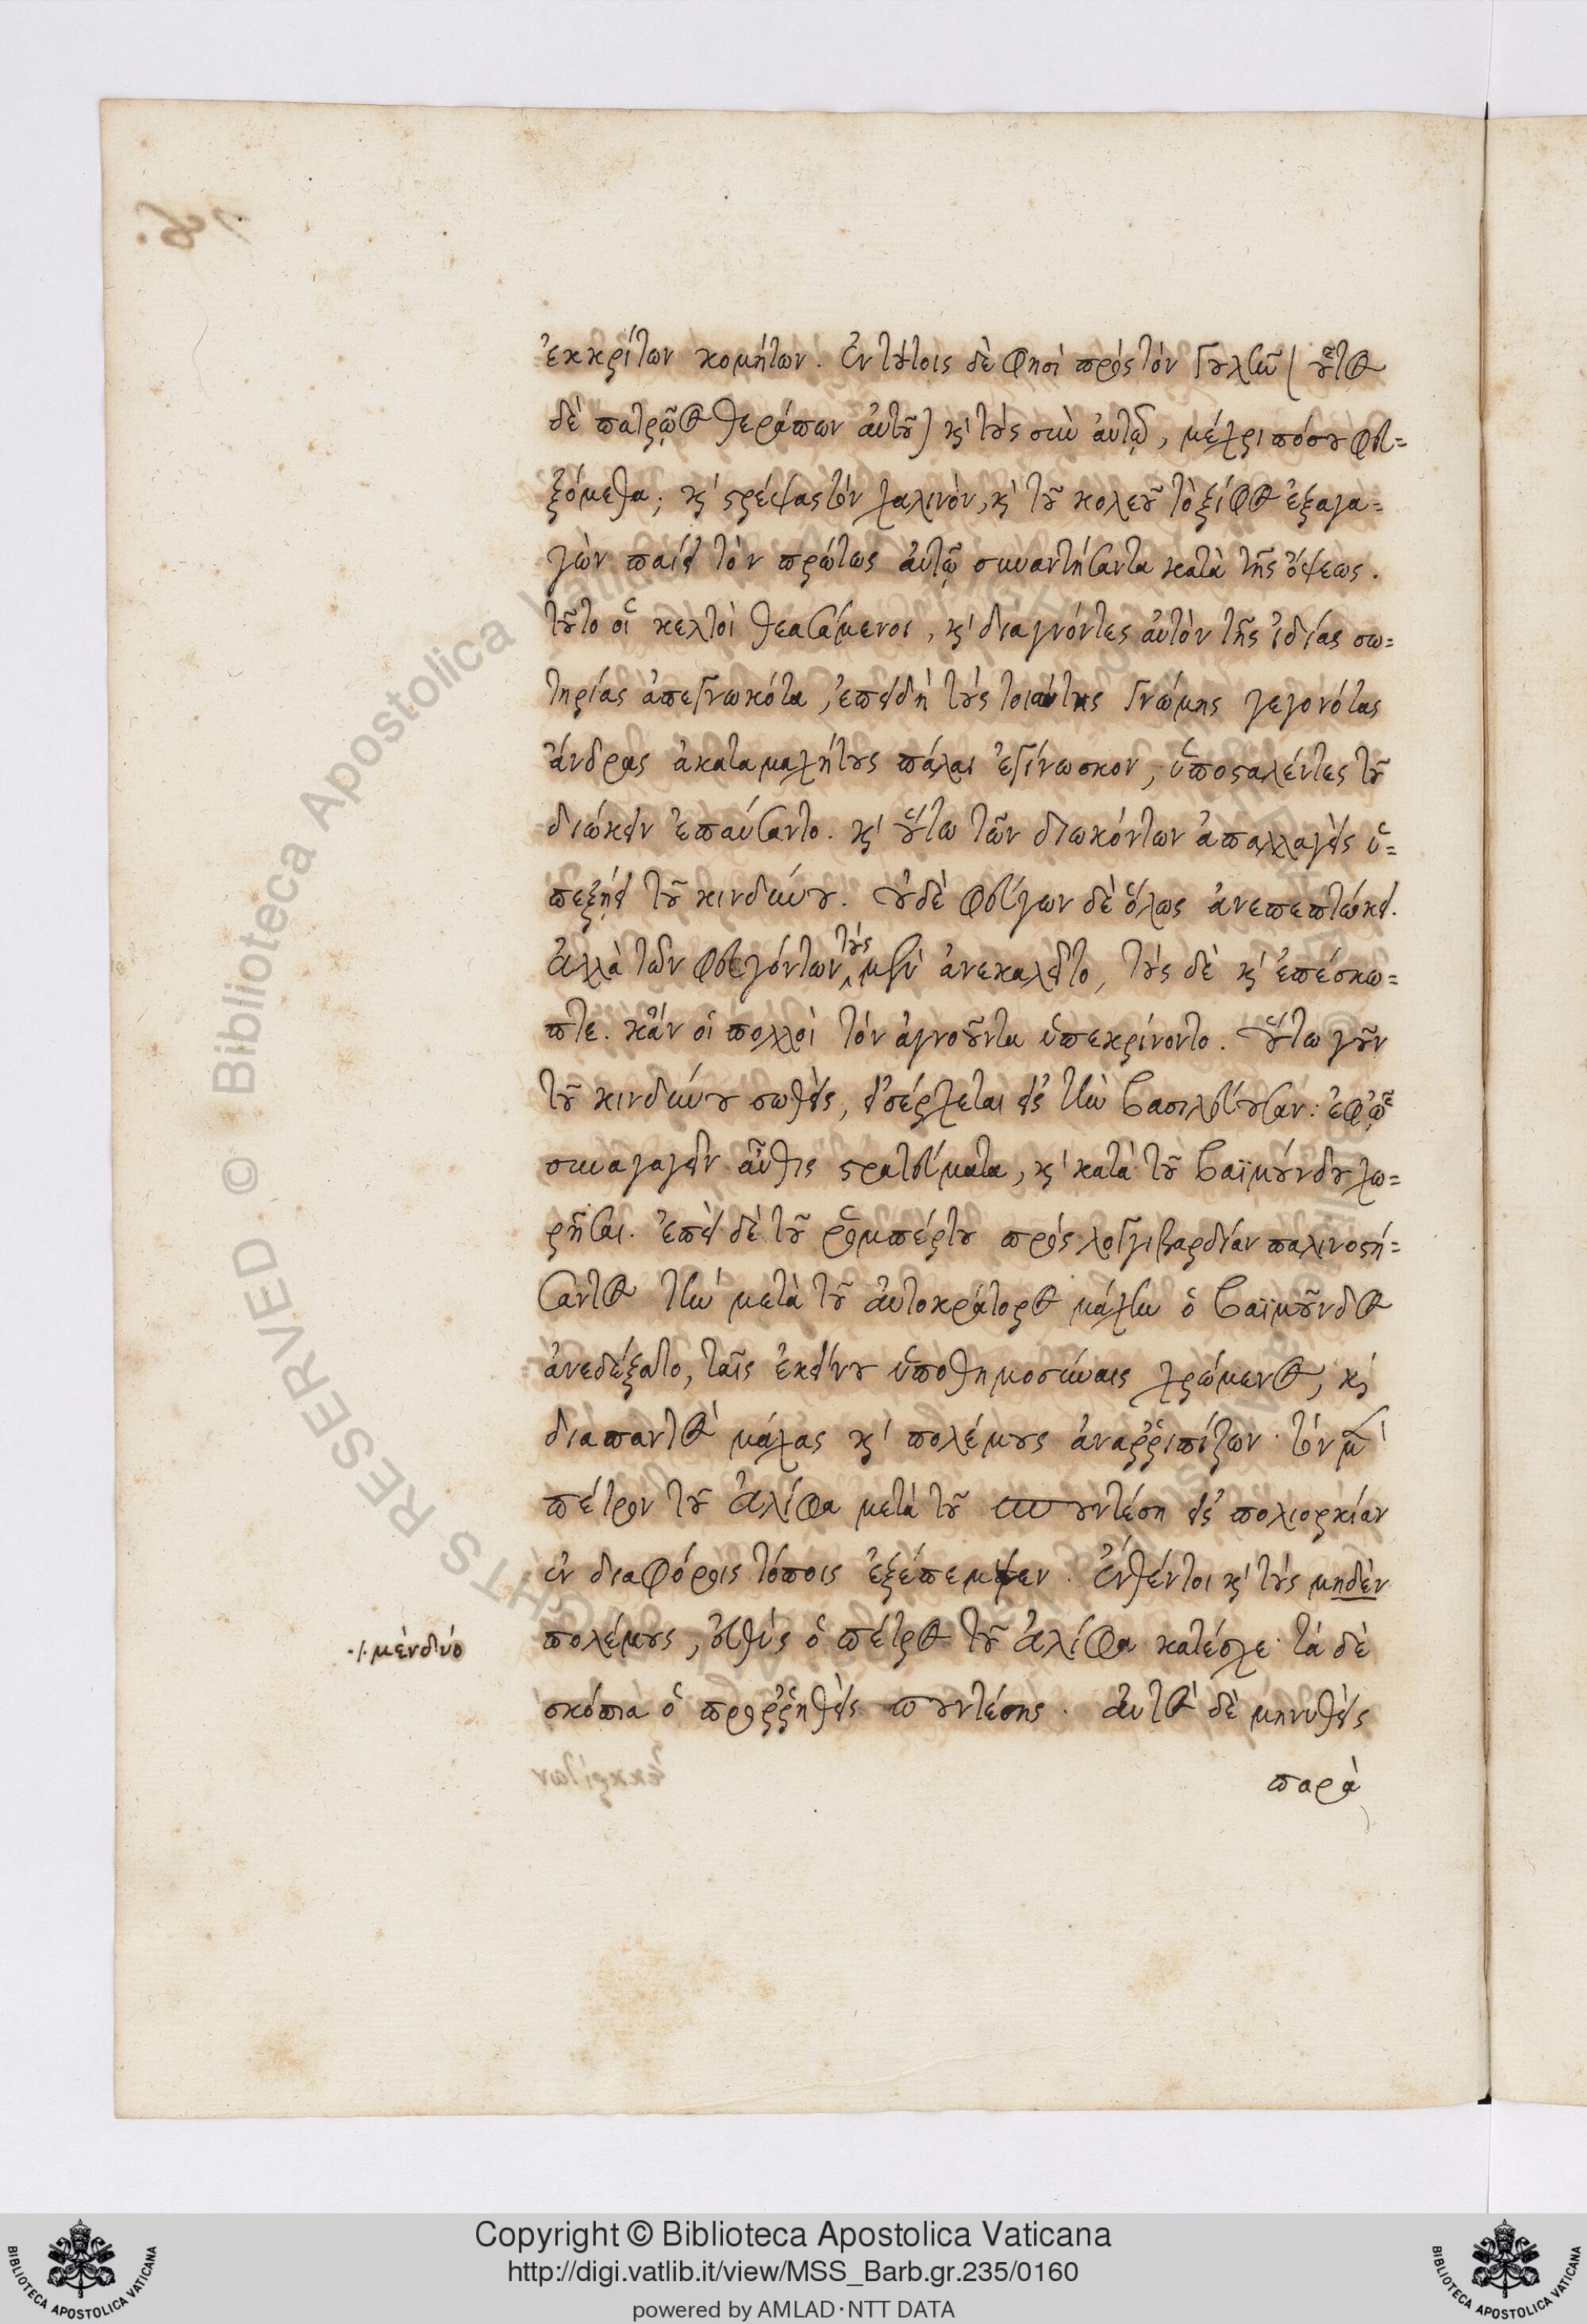 ἐκκρίτων κομήτων. Ἐν τούτοις δὲ φησὶ πρὸς τόν Γουλὴν (οὗτος
δὲ πατρῷος θεράπων αὐτοῦ) καὶ τοὺς σὺν αὐτῷ, μέχρι πόσου φευ=
ξόμεθα; καὶ στρέψας τὸν χαλινὸν, καὶ τοῦ κολεοῦ τὸ ξίφος ἐξαγα=
γὼν παίει τὸν πρώτως αὐτῷ συναντήσαντα κατὰ τῆς ὄψεως.
τοῦτο οἱ κελτοὶ θεασάμενοι, καὶ διαγνόντες αὐτὸν τῆς ἰδίας σω=
τηρίας ἀπεγνωκότα, ἐπειδὴ τοὺς τοιαύτης γνώμης γεγονότας
ἄνδρας ἀκαταμαχήτους πάλαι ἐγίνωσκον, ὑποσταλέντες τοῦ
διώκειν ἐπαύσαντο. καὶ οὕτω τῶν διωκόντων ἀπαλλαγεὶς ὑ=
πεξῄει τοῦ κινδύνου. οὐδὲ φεύγων δὲ ὅλως ἀνεπεπτώκει.
ἀλλὰ τῶν φευγόντων τοὺς μὲν ἀνεκαλεῖτο, τοὺς δὲ καὶ ἐπέσκω=
πτε. κἂν οἱ πολλοὶ τόν ἀγνοοῦντα ὑπεκρίνοντο. οὕτω γοῦν
τοῦ κινδύνου σωθεὶς, εἰσέρχεται εἰς τὴν βασιλεύουσαν: ἐφ' ᾧ
συναγαγεῖν αὖθις στρατεύματα, καὶ κατὰ τοῦ βαϊμούνδου χω=
ρῆσαι. ἐπεὶ δὲ τοῦ ῥομπέρτου πρὸς λογγιβαρδίαν παλινοστή=
σαντος τὴν μετὰ τοῦ αὐτοκράτορος μάχην ὁ βαϊμοῦνδος
ἀνεδέξατο, ταῖς ἐκείνου ὑποθημοσύναις χρώμενος, καὶ
διαπαντὸς μάχας καὶ πολέμους ἀναῤῥιπίζων. τὸν μὲν
πέτρον τοῦ ἀλίφα μετὰ τοῦ πουντέση εἰς πολιορκίαν
ἐν διαφόροις τόποις ἐξέπεμψεν. ἐνθέντοι καὶ τοὺς μηδὲν
πολέμους, εὐθὺς ὁ πέτρος τοῦ ἀλίφα κατέσχε. τὰ δὲ
·/· μὲν δύο
σκόπια ὁ προῤῥηθεὶς πουντέσης. αὐτὸς δὲ μηνυθεὶς
παρὰ
Copyright © Biblioteca Apostolica Vaticana
http://digi.vatlib.it/view/MSS_Barb.gr.235/0160
powered by AMLAD·NTT DATA